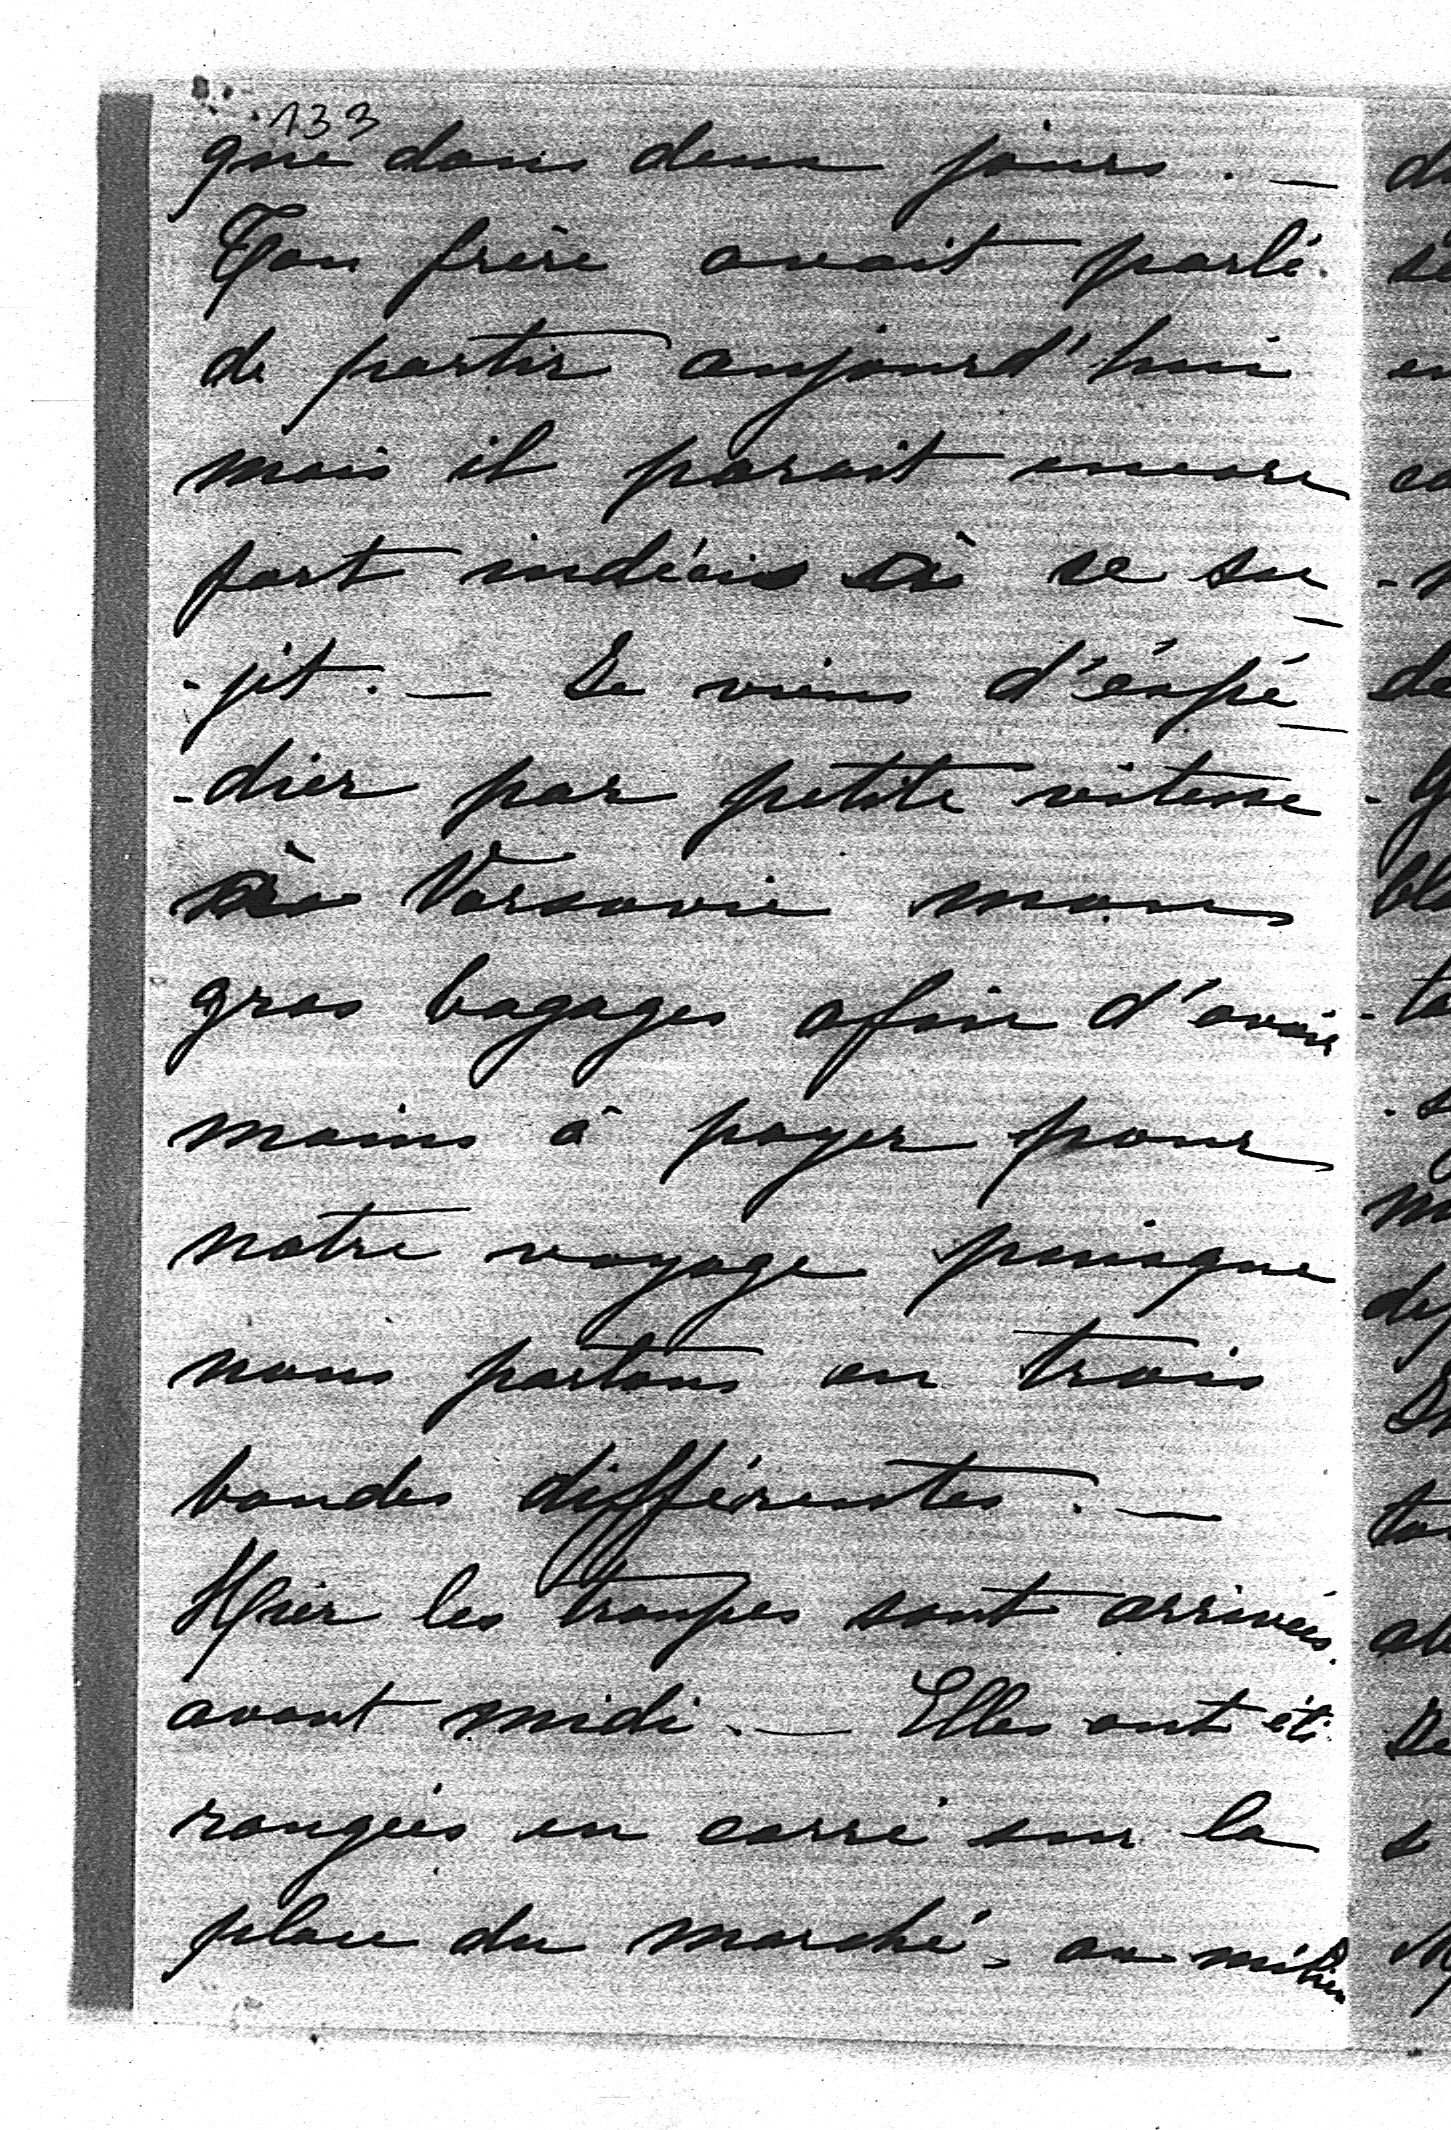 133
que dans deux jours. —
Ton frère avait parlé
de partir aujourd'hui
mais il parait encore
fort indécis à ce su
-jet. — Je viens d'éxpé
-dier par petite vitesse
à Varsovie mons
gros bagages afin d'avoir
moins à payer pour
notre voyage puisque
nous partons en trois
bandes différentes. —
Hier les troupes sont arrivées
avant midi. — Elles ont été
rangées en carré sur la
place du marché, au milieu